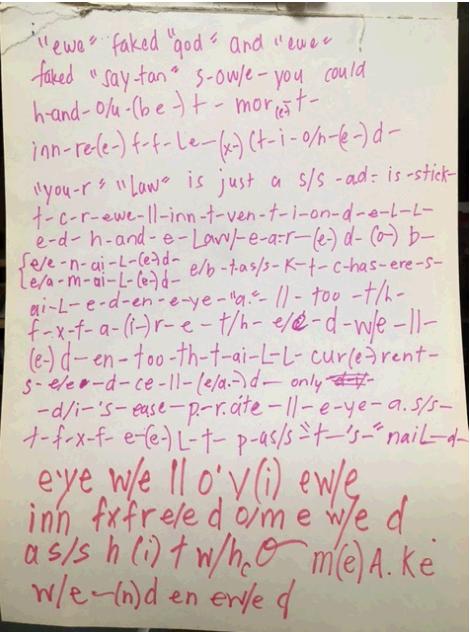 "ewe" faked "god" and "ewe"
faked "say-tan" s-ow/e-you could
h-and-o/u-(be-)t-mor(e)-t-
inn-re(e-)f-f-le-(x-)(t-i-o/n-(e-)d-
"you-r" "Law" is just a s/s-ad= is-stick-
t-c-r-ewe-ll-inn-t-ven-t-i-on-d-e-L-L-
e-d-h-and-e-Law/-e-a-r-(e-)d-(o-)b-
{e/e-n-ai-L-(e-)d-
{e/a-m-ai-L-(e-)d- e/b-t-as/s-K-t-c-has-ere-s-
ai-L-e-d-en-e-ye-"a."-ll-too-t/h-
f-x-f-a-(i-)r-e-t/h-e/e-d-w/e-ll-
(e-)d-en-too-th-t-ai-L-L-cur(e-)rent-
s-e/e-d-ce-ll-(e/a-)d-only
-d/i-'s-ease-p-r-ate-ll-e-ye-a.s/s-
t-f-x-f-e-(e-)L-t-p-as/s="t-'s-"naiL-d-
e·ye w/e ll o'v(i) ew/e
inn fxfre/e d o/m e w/e d
a s/s h (i) t w/h m(e)A.Ke
w/e-(n)d en ew/e d